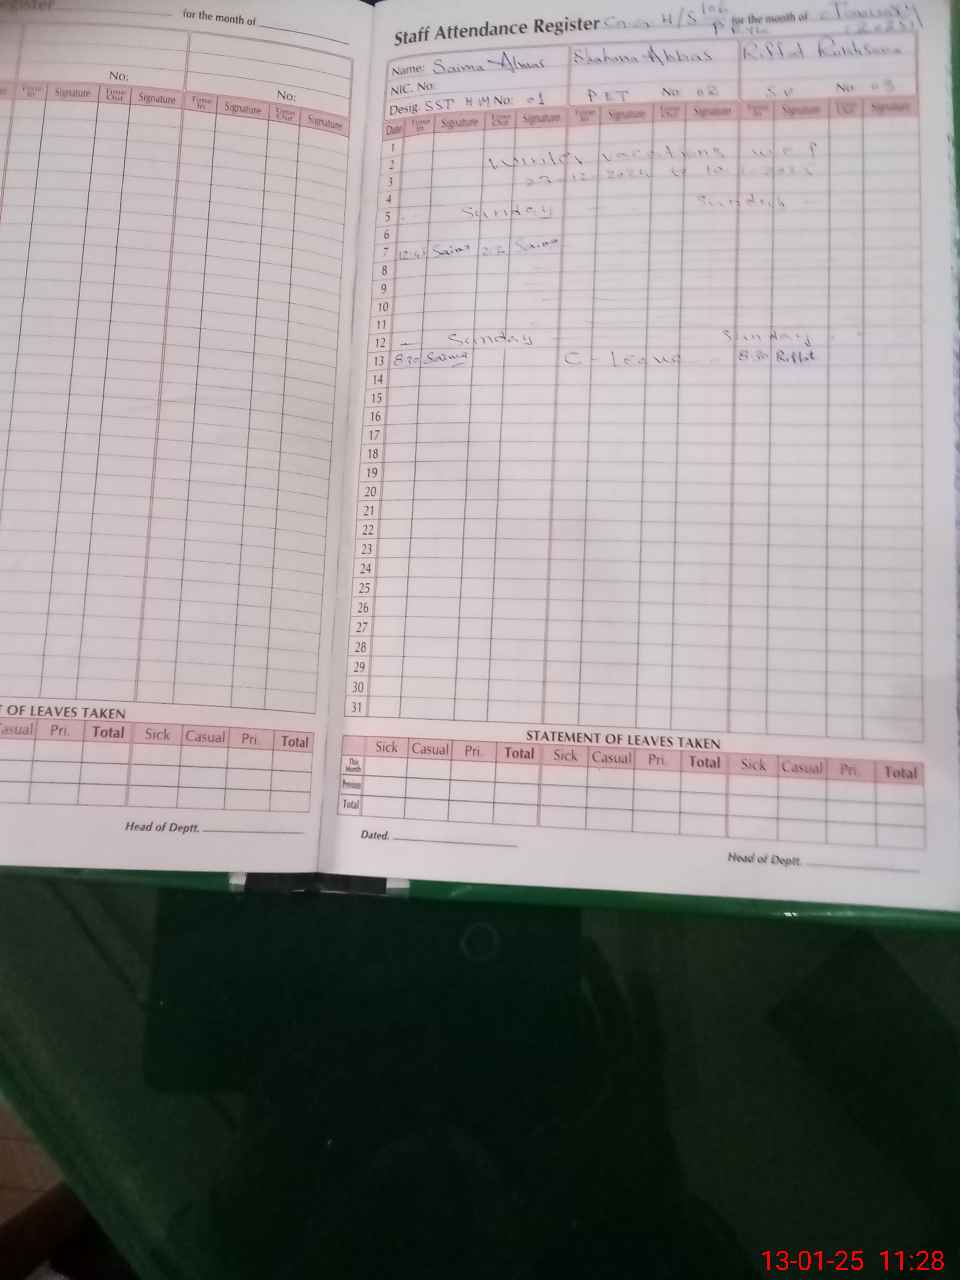 Register
for the month of
No:
No:
Time In Signature Time Out Signature Time In Signature Time Out Signature
T OF LEAVES TAKEN
Casual Pri. Total Sick Casual Pri. Total
Head of Deptt.
Staff Attendance Register H/S for the month of January
(2025)
Name: Saima Abbas Shabana Abbas Riffat Rukhsana
NIC. No:
Desig: SST HM No: 01 PET No: 02 SV No: 03
Date Time In Signature Time Out Signature Time In Signature Time Out Signature Time In Signature Time Out Signature
1
2 Winter vacations w.e.f
3 23-12-2024 to 10-1-2025
4
5 Sunday Sunday
6
7 Saima Saima
8
9
10
11
12 Sunday Sunday
13 8:30 Saima C-leave 8:30 Riffat
14
15
16
17
18
19
20
21
22
23
24
25
26
27
28
29
30
31
STATEMENT OF LEAVES TAKEN
Sick Casual Pri. Total Sick Casual Pri. Total Sick Casual Pri. Total
This Month
Previous
Total
Dated.
Head of Deptt.
13-01-25 11:28